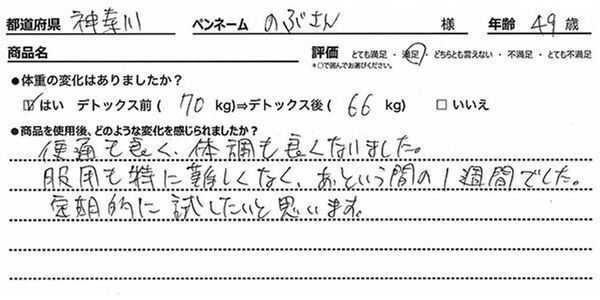 都道府県 神奈川 ペンネーム のぶさん 様 年齢 49 歳
商品名 評価 とても満足 ・ 満足 ・ どちらとも言えない ・ 不満足 ・ とても不満足
*○で囲んでお選びください。
●体重の変化はありましたか?
☑ はい デトックス前 ( 70 kg)⇒デトックス後 ( 66 kg) □ いいえ
●商品を使用後、どのような変化を感じられましたか?
便通も良く、体調も良くないました。
服用も特に難しくなく、あっという間の1週間でした。
定期的に試したいと思います。